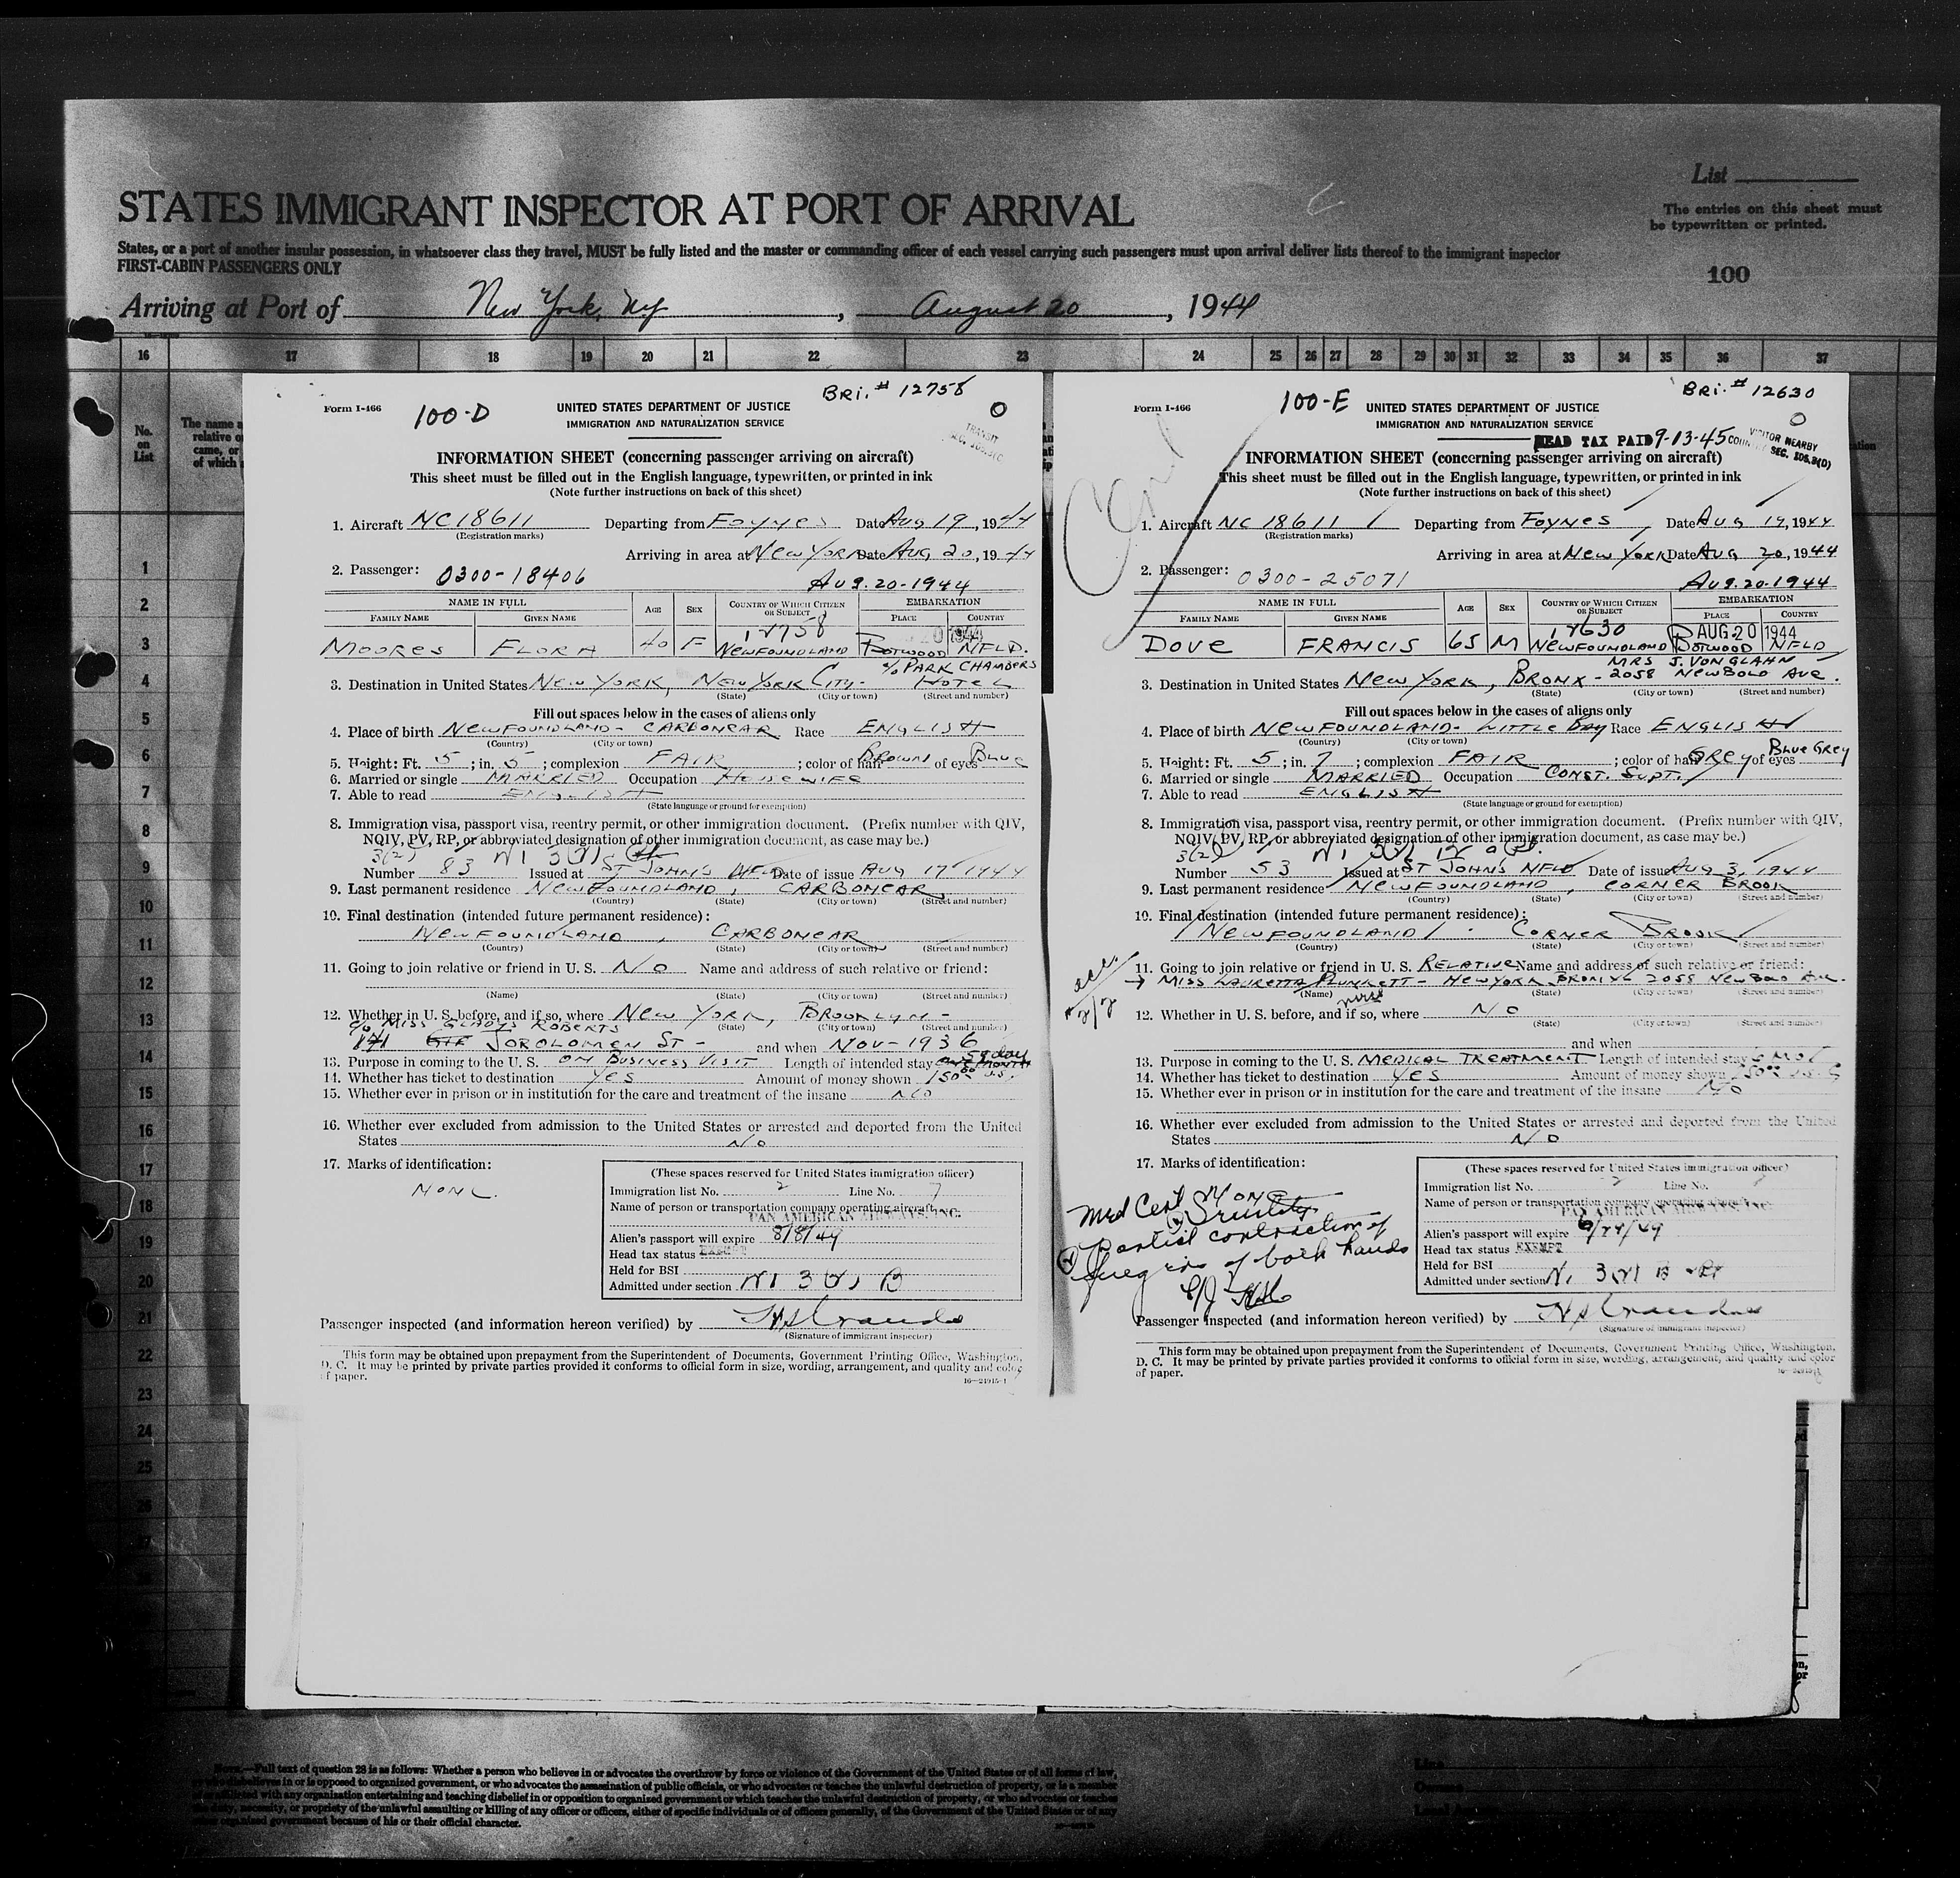 List
STATES IMMIGRANT INSPECTOR AT PORT OF ARRIVAL
The entries on this sheet must
be typewritten or printed.
States, or a port of another insular possession, in whatsoever class they travel, MUST be fully listed and the master or commanding officer of each vessel carrying such passengers must upon arrival deliver lists thereof to the immigrant inspector
FIRST-CABIN PASSENGERS ONLY
100
Arriving at Port of New York, NY, August 20, 1944
16 17 18 19 20 21 22 23 24 25 26 27 28 29 30 31 32 33 34 35 36 37
No.
on
List
The name a
relative o
came, or
of which
1
2
3
4
5
6
7
8
9
10
11
12
13
14
15
16
17
18
19
20
21
22
23
24
25
BRI. # 12758
Form I-466 100-D UNITED STATES DEPARTMENT OF JUSTICE
IMMIGRATION AND NATURALIZATION SERVICE
TRANSIT
INFORMATION SHEET (concerning passenger arriving on aircraft)
This sheet must be filled out in the English language, typewritten, or printed in ink
(Note further instructions on back of this sheet)
1. Aircraft NC18611 Departing from Foynes Date Aug 19, 1944
(Registration marks)
Arriving in area at New York Date Aug 20, 1944
2. Passenger: 0300-18406 Aug. 20-1944
NAME IN FULL AGE SEX COUNTRY OF WHICH CITIZEN OR SUBJECT EMBARKATION
FAMILY NAME GIVEN NAME PLACE COUNTRY
12758 20 1944
MOORES FLORA 40 F NEWFOUNDLAND BOTWOOD NFLD.
c/o PARK CHAMBERS
3. Destination in United States NEW YORK, NEW YORK CITY- HOTEL
(State) (City or town) (Street and number)
Fill out spaces below in the cases of aliens only
4. Place of birth NEWFOUNDLAND - CARBONEAR Race ENGLISH
(Country) (City or town)
5. Height: Ft. 5; in. 5; complexion FAIR; color of hair BROWN of eyes BLUE
6. Married or single MARRIED Occupation HOUSEWIFE
7. Able to read ENGLISH
(State language or ground for exemption)
8. Immigration visa, passport visa, reentry permit, or other immigration document. (Prefix number with QIV,
NQIV, PV, RP, or abbreviated designation of other immigration document, as case may be.)
3(2)
Number 83 Issued at ST JOHN'S NFLD Date of issue AUG 17 1944
9. Last permanent residence NEWFOUNDLAND, CARBONEAR
(Country) (State) (City or town) (Street and number)
10. Final destination (intended future permanent residence):
NEWFOUNDLAND, CARBONEAR
(Country) (State) (City or town) (Street and number)
11. Going to join relative or friend in U. S. NO Name and address of such relative or friend:
(Name) (State) (City or town) (Street and number)
12. Whether in U. S. before, and if so, where NEW YORK, BROOKLYN -
c/o MISS GLADYS ROBERTS (State) (City or town) (Street and number)
ST - and when NOV - 1936
13. Purpose in coming to the U. S. ON BUSINESS VISIT Length of intended stay
14. Whether has ticket to destination YES Amount of money shown 150.00 U.S.
15. Whether ever in prison or in institution for the care and treatment of the insane NO
16. Whether ever excluded from admission to the United States or arrested and deported from the United
States NO
17. Marks of identification:
NONE.
(These spaces reserved for United States immigration officer)
Immigration list No. 2 Line No. 7
Name of person or transportation company operating aircraft
PAN AMERICAN AIRWAYS, INC.
Alien's passport will expire 8/8/49
Head tax status EXEMPT
Held for BSI
Admitted under section
Passenger inspected (and information hereon verified) by
(Signature of immigrant inspector)
This form may be obtained upon prepayment from the Superintendent of Documents, Government Printing Office, Washington,
D. C. It may be printed by private parties provided it conforms to official form in size, wording, arrangement, and quality and color
of paper.
16—24915-1
BRI. # 12630
Form I-466 100-E UNITED STATES DEPARTMENT OF JUSTICE
IMMIGRATION AND NATURALIZATION SERVICE
HEAD TAX PAID 9-13-45
VISITOR NEARBY
SEC. 105.3(D)
INFORMATION SHEET (concerning passenger arriving on aircraft)
This sheet must be filled out in the English language, typewritten, or printed in ink
(Note further instructions on back of this sheet)
1. Aircraft NC 18611 Departing from FOYNES Date AUG 19, 1944
(Registration marks)
Arriving in area at NEW YORK Date AUG 20, 1944
2. Passenger: 0300-25071 Aug. 20-1944
NAME IN FULL AGE SEX COUNTRY OF WHICH CITIZEN OR SUBJECT EMBARKATION
FAMILY NAME GIVEN NAME PLACE COUNTRY
12630 AUG 20 1944
DOVE FRANCIS 65 M NEWFOUNDLAND BOTWOOD NFLD
MRS J. VONGLAHN
3. Destination in United States NEW YORK, BRONX - 2058 NEWBOLD AVE.
(State) (City or town) (Street and number)
Fill out spaces below in the cases of aliens only
4. Place of birth NEWFOUNDLAND - LITTLE BAY Race ENGLISH
(Country) (City or town)
5. Height: Ft. 5; in. 7; complexion FAIR; color of hair GREY of eyes BLUE GREY
6. Married or single MARRIED Occupation CONST. SUPT.
7. Able to read ENGLISH
(State language or ground for exemption)
8. Immigration visa, passport visa, reentry permit, or other immigration document. (Prefix number with QIV,
NQIV, PV, RP, or abbreviated designation of other immigration document, as case may be.)
3(2)
Number 53 Issued at ST JOHN'S NFLD Date of issue AUG 3, 1944
9. Last permanent residence NEWFOUNDLAND, CORNER BROOK
(Country) (State) (City or town) (Street and number)
10. Final destination (intended future permanent residence):
NEWFOUNDLAND CORNER BROOK
(Country) (State) (City or town) (Street and number)
11. Going to join relative or friend in U. S. RELATIVE Name and address of such relative or friend:
MISS LAURETTA PLUNKETT - NEW YORK BRONX 2058 NEWBOLD AVE.
(Name) (State) (City or town) (Street and number)
12. Whether in U. S. before, and if so, where NO
(State) (City or town) (Street and number)
and when
13. Purpose in coming to the U. S. MEDICAL TREATMENT Length of intended stay 6 MOS
14. Whether has ticket to destination YES Amount of money shown
15. Whether ever in prison or in institution for the care and treatment of the insane NO
16. Whether ever excluded from admission to the United States or arrested and deported from the United
States NO
17. Marks of identification:
NONE
Med Cert
① Senility
② partial contraction of
fingers of both hands
(These spaces reserved for United States immigration officer)
Immigration list No. 2 Line No.
Name of person or transportation company operating aircraft
PAN AMERICAN AIRWAYS, INC.
Alien's passport will expire
Head tax status EXEMPT
Held for BSI
Admitted under section
Passenger inspected (and information hereon verified) by
(Signature of immigrant inspector)
This form may be obtained upon prepayment from the Superintendent of Documents, Government Printing Office, Washington,
D. C. It may be printed by private parties provided it conforms to official form in size, wording, arrangement, and quality and color
of paper.
NOTE.—Full text of question 28 is as follows: Whether a person who believes in or advocates the overthrow by force or violence of the Government of the United States or of all forms of law,
or who disbelieves in or is opposed to organized government, or who advocates the assassination of public officials, or who advocates or teaches the unlawful destruction of property, or is a member
of or affiliated with any organization entertaining and teaching disbelief in or opposition to organized government or which teaches the unlawful destruction of property, or who advocates or teaches
the duty, necessity, or propriety of the unlawful assaulting or killing of any officer or officers, either of specific individuals or of officers generally, of the Government of the United States or of any
other organized government because of his or their official character.